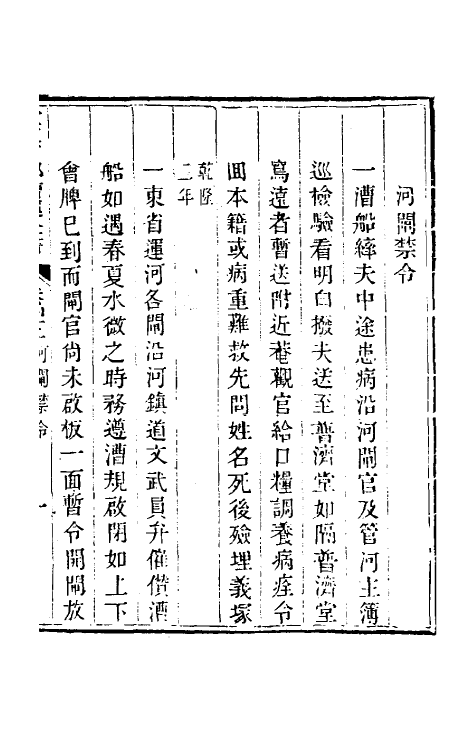 河閘禁令
一漕船縴夫中途患病沿河閘官及管河主簿
巡檢驗看明白撥夫送至普濟堂如隔普濟堂
窵遠者暫送附近菴觀官給口糧調養病痊令
囬本籍或病重難救先問姓名死後殮埋義塚
乾隆
二年
一東省運河各閘沿河鎮道文武員弁催儹漕
船如遇春夏水微之時務遵漕規啟閉如上下
會牌已到而閘官尚未啟板一面暫令開閘放
河閘禁令
一